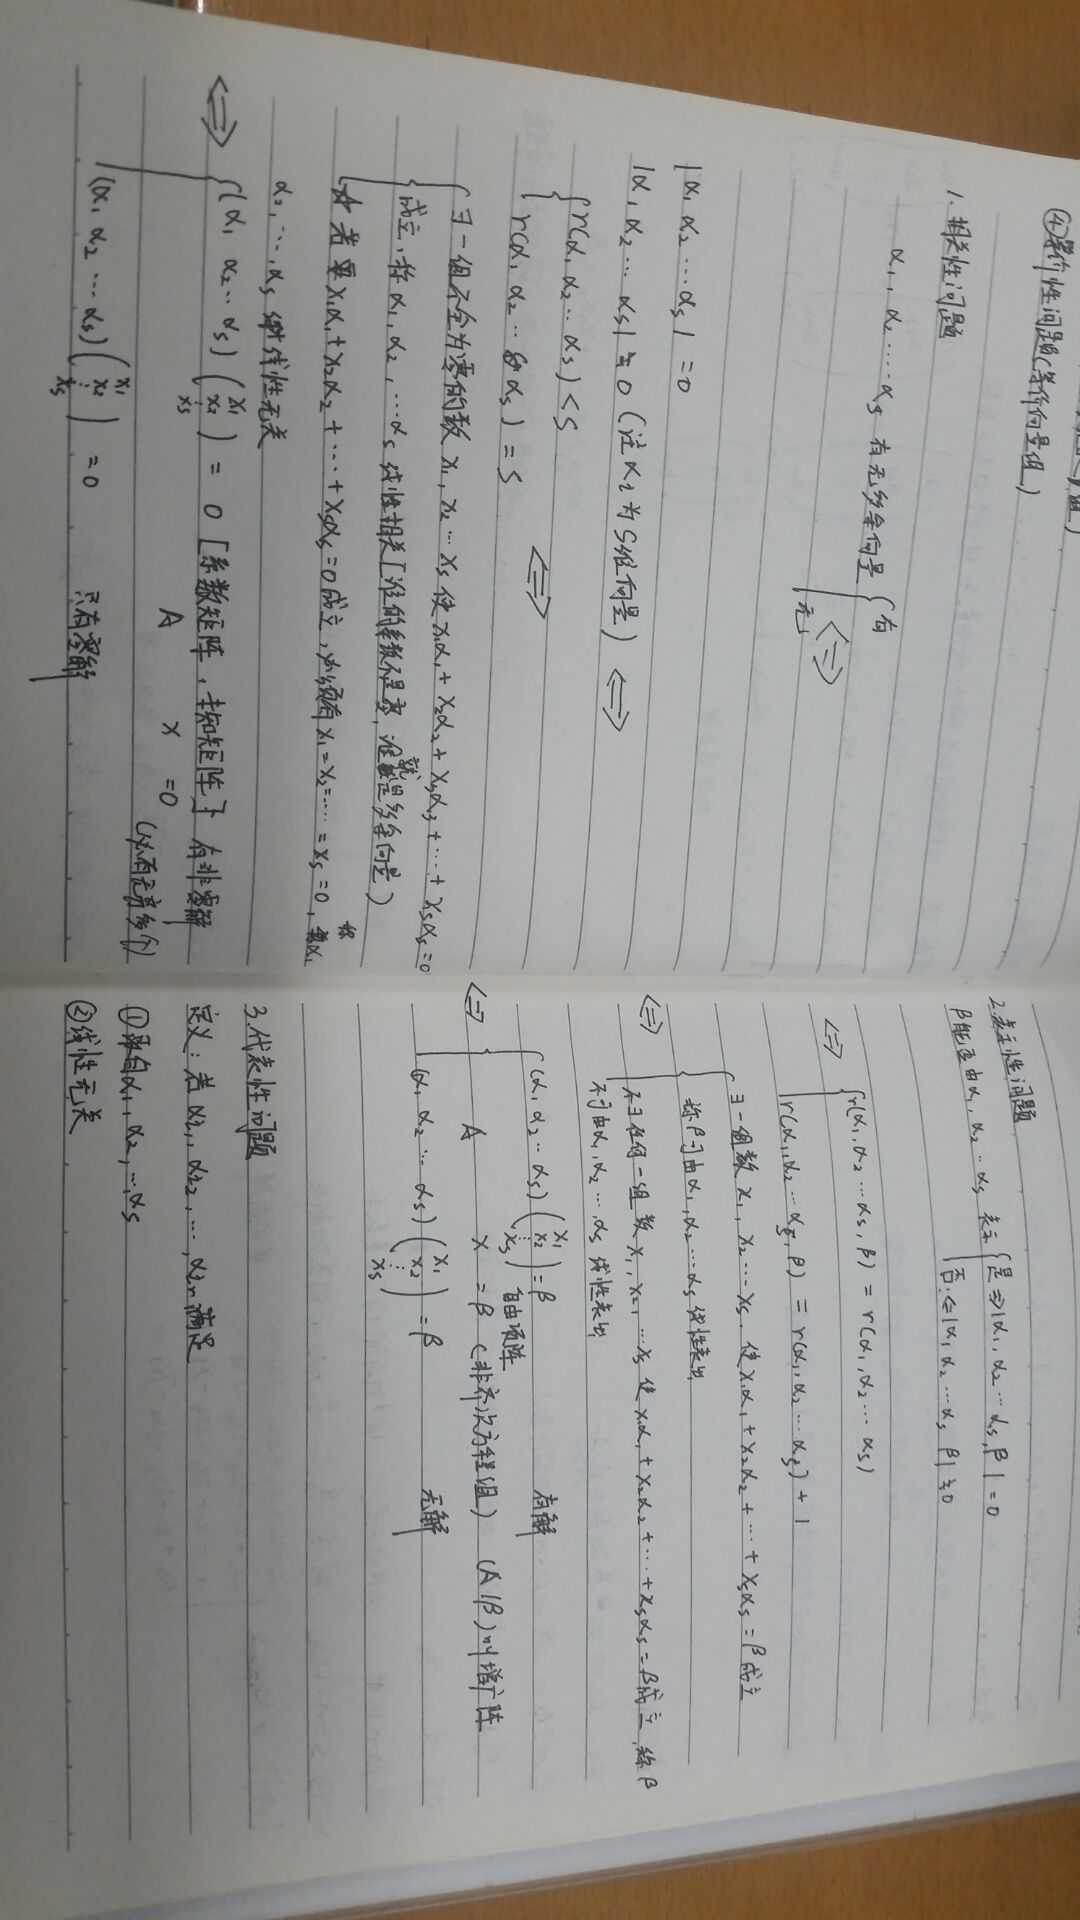 ④等价性问题(等价向量组)
1.相关性问题
α₁,α₂……αₛ 有无多余向量 { 有
无
⟺
|α₁ α₂…αₛ| = 0
|α₁ α₂…αₛ| ≠ 0 (注αᵢ为S维向量) ⟺
{ r(α₁ α₂…αₛ) < S
r(α₁ α₂…αₛ) = S ⟺
{ ∃一组不全为零的数 x₁, x₂…xₛ 使x₁α₁+x₂α₂+x₃α₃+…+xₛαₛ=0
成立,称α₁,α₂,…αₛ线性相关[谁的系数不是零,谁就是多余向量)
若要x₁α₁+x₂α₂+…+xₛαₛ=0成立,必须有x₁=x₂=…=xₛ=0,称α₁
α₂,…,αₛ线性无关
⟺ { (α₁ α₂…αₛ) (x₁ x₂ ⋮ xₛ) = 0 [系数矩阵, 未知矩阵] 有非零解
A x =0 (必有无穷多个)
(α₁ α₂…αₛ) (x₁ x₂ ⋮ xₛ) = 0 只有零解
2.表示性问题
β能否由α₁ α₂…αₛ 表示 { 是⟺|α₁,α₂…αₛ,β|=0
否⟺|α₁ α₂…αₛ β|≠0
⟺ { r(α₁,α₂…αₛ,β) = r(α₁,α₂…αₛ)
r(α₁,α₂…αₛ,β) = r(α₁,α₂…αₛ)+1
{ ∃一组数x₁,x₂…xₛ, 使x₁α₁+x₂α₂+…+xₛαₛ=β成立
称β可由α₁,α₂…αₛ线性表出
⟺ 不∃任何一组数x₁,x₂,…xₛ使x₁α₁+x₂α₂+…+xₛαₛ=β成立,称β
不可由α₁,α₂…,αₛ线性表出
{ (α₁ α₂…αₛ) (x₁ x₂ ⋮ xₛ) =β 有解
自由项阵
⟺ A x =β (非齐次方程组) (A|β)叫增广阵
(α₁ α₂…αₛ) (x₁ x₂ ⋮ xₛ) =β 无解
3.代表性问题
定义:若αᵢ₁,αᵢ₂,…,αᵢᵣ满足
①取自α₁,α₂,…,αₛ
②线性无关